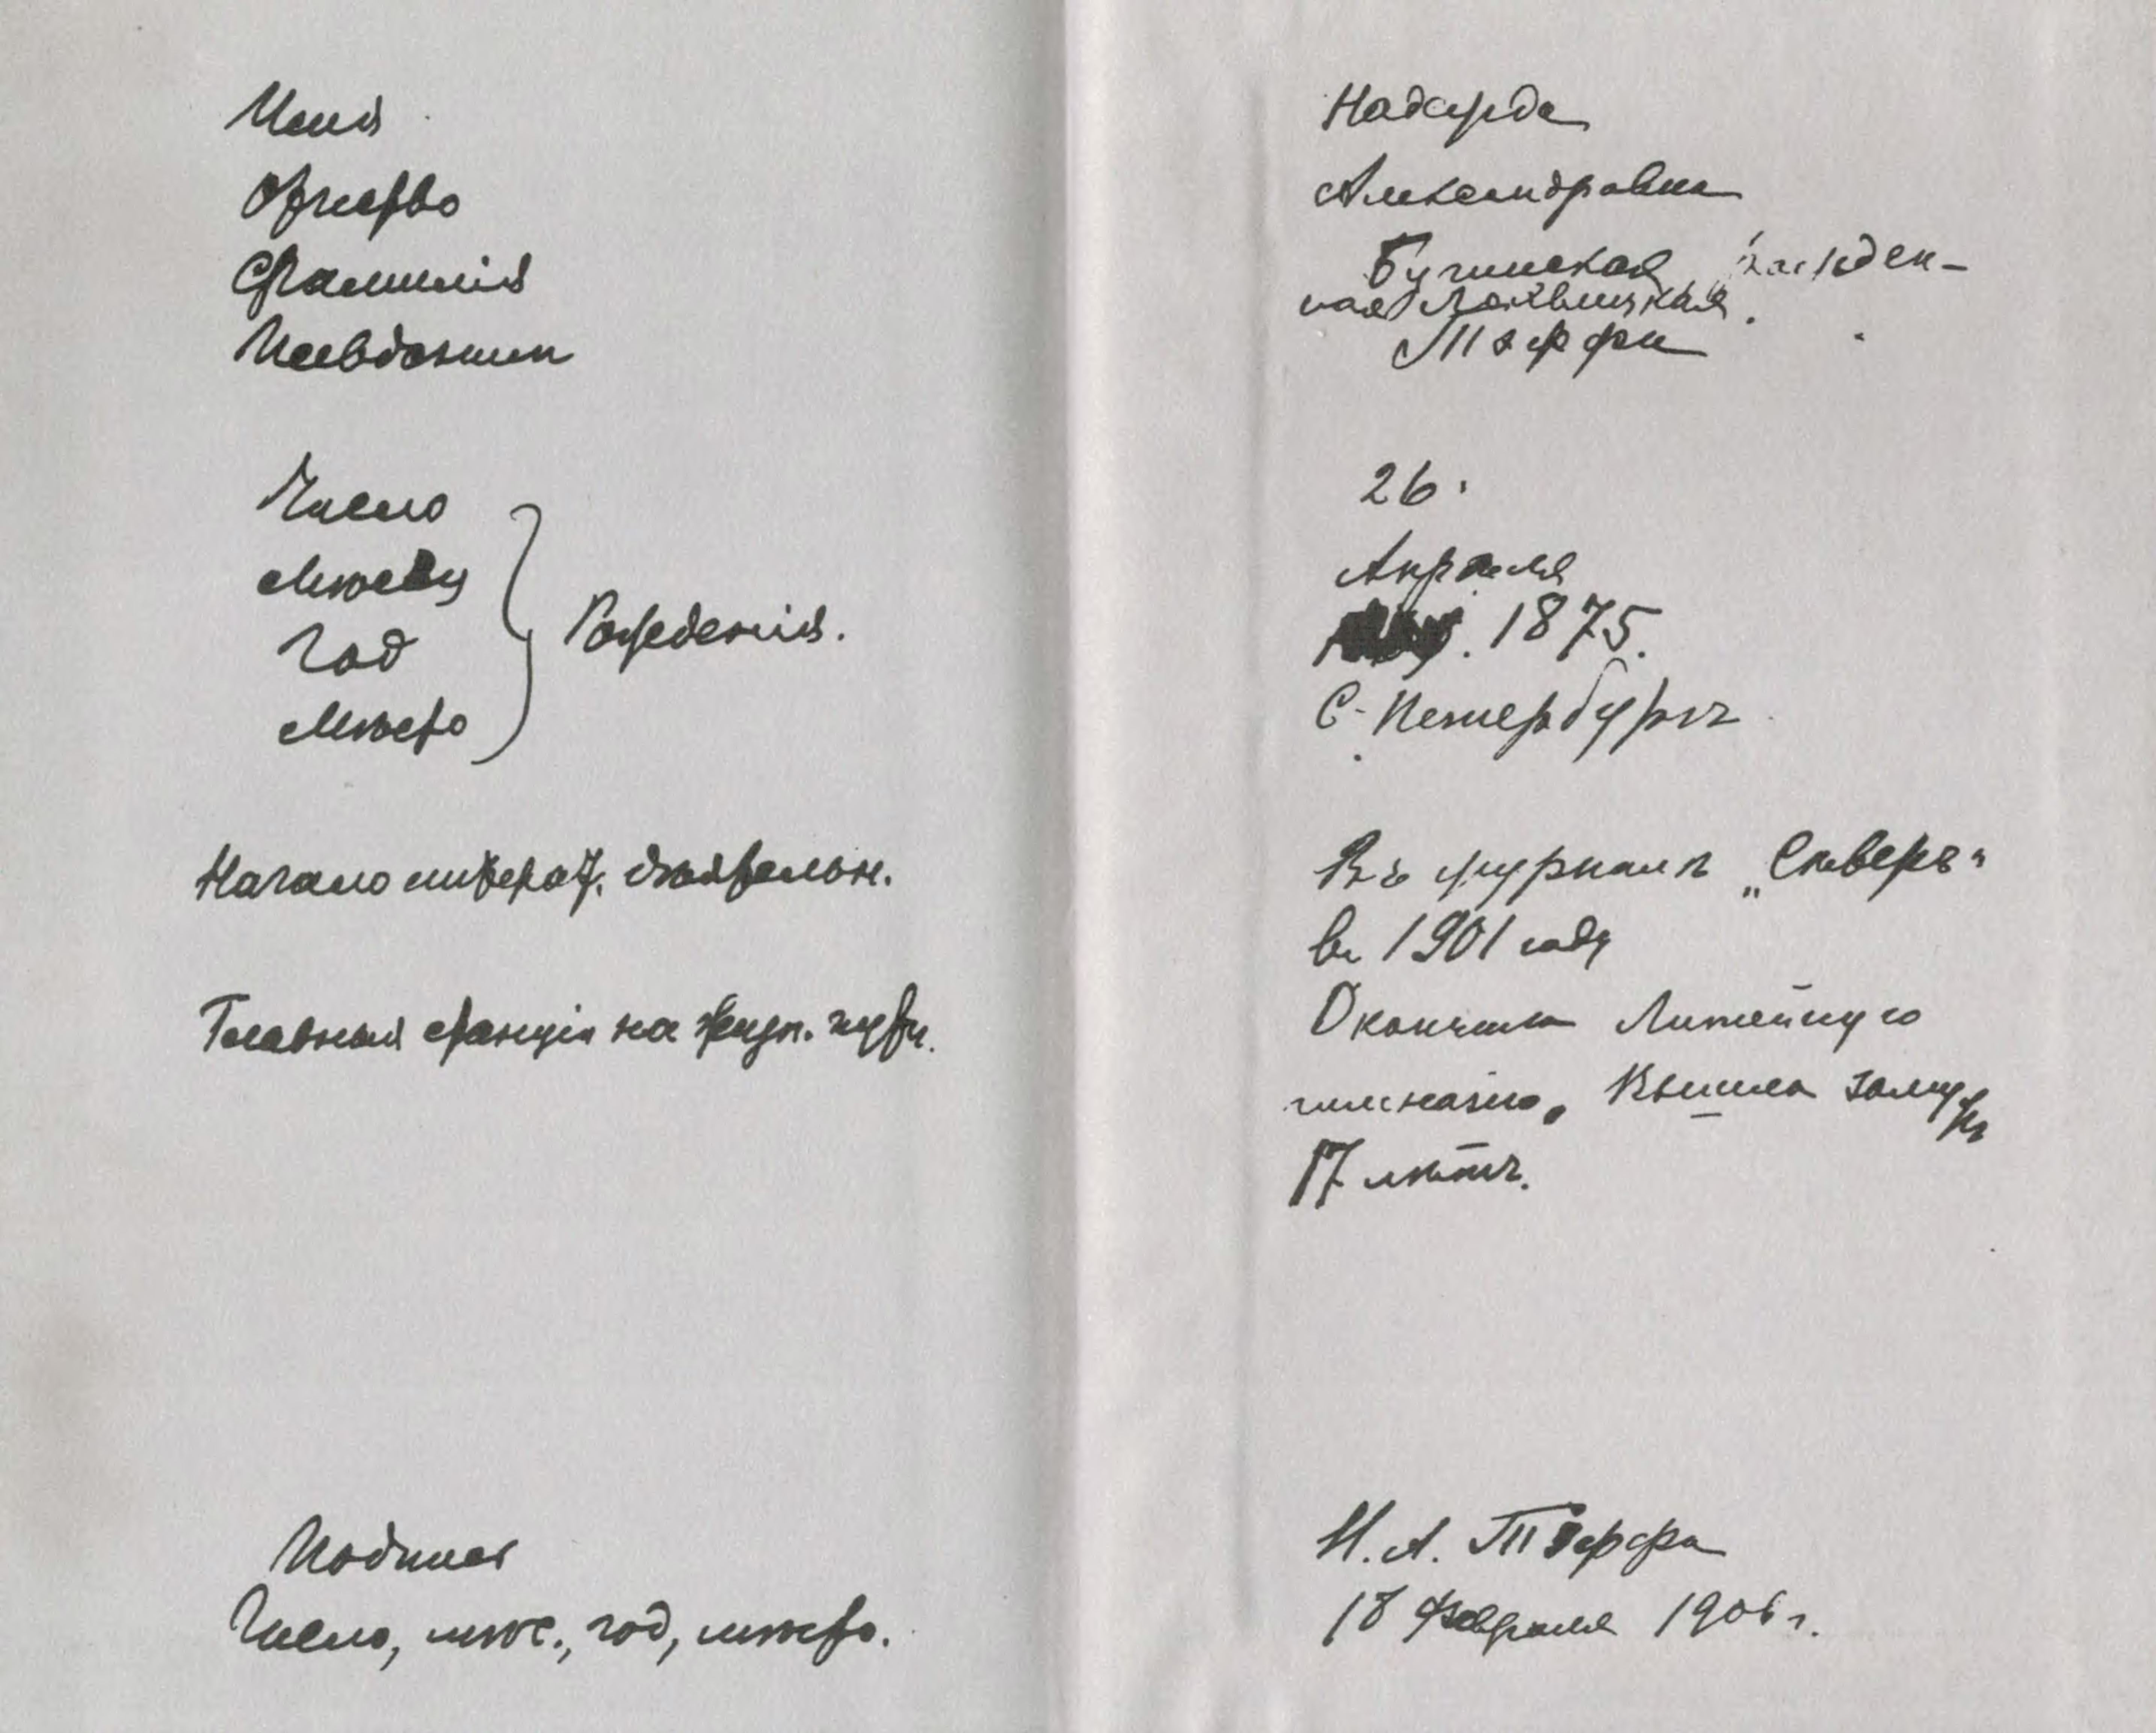 Имя
Отчество
Фамилія
Псевдоним
Число
Мѣсяц
Год
Мѣсто
Рожденія.
Начало литерат. дѣятельн.
Главныя станціи на жизн. пути.
Подпись
Число, мѣс., год, мѣсто.
Надежда
Александровна
Бучинская, рожден-
ная Лохвицкая.
Тэффи
26.
Апрѣля
1875.
С-Петербургъ
Въ журналѣ „Сѣверъ“
въ 1901 году
Окончила Литейную
гимназію. Вышла замужъ
17 лѣтъ.
Н. А. Тэффи
18 Февраля 1906 г.